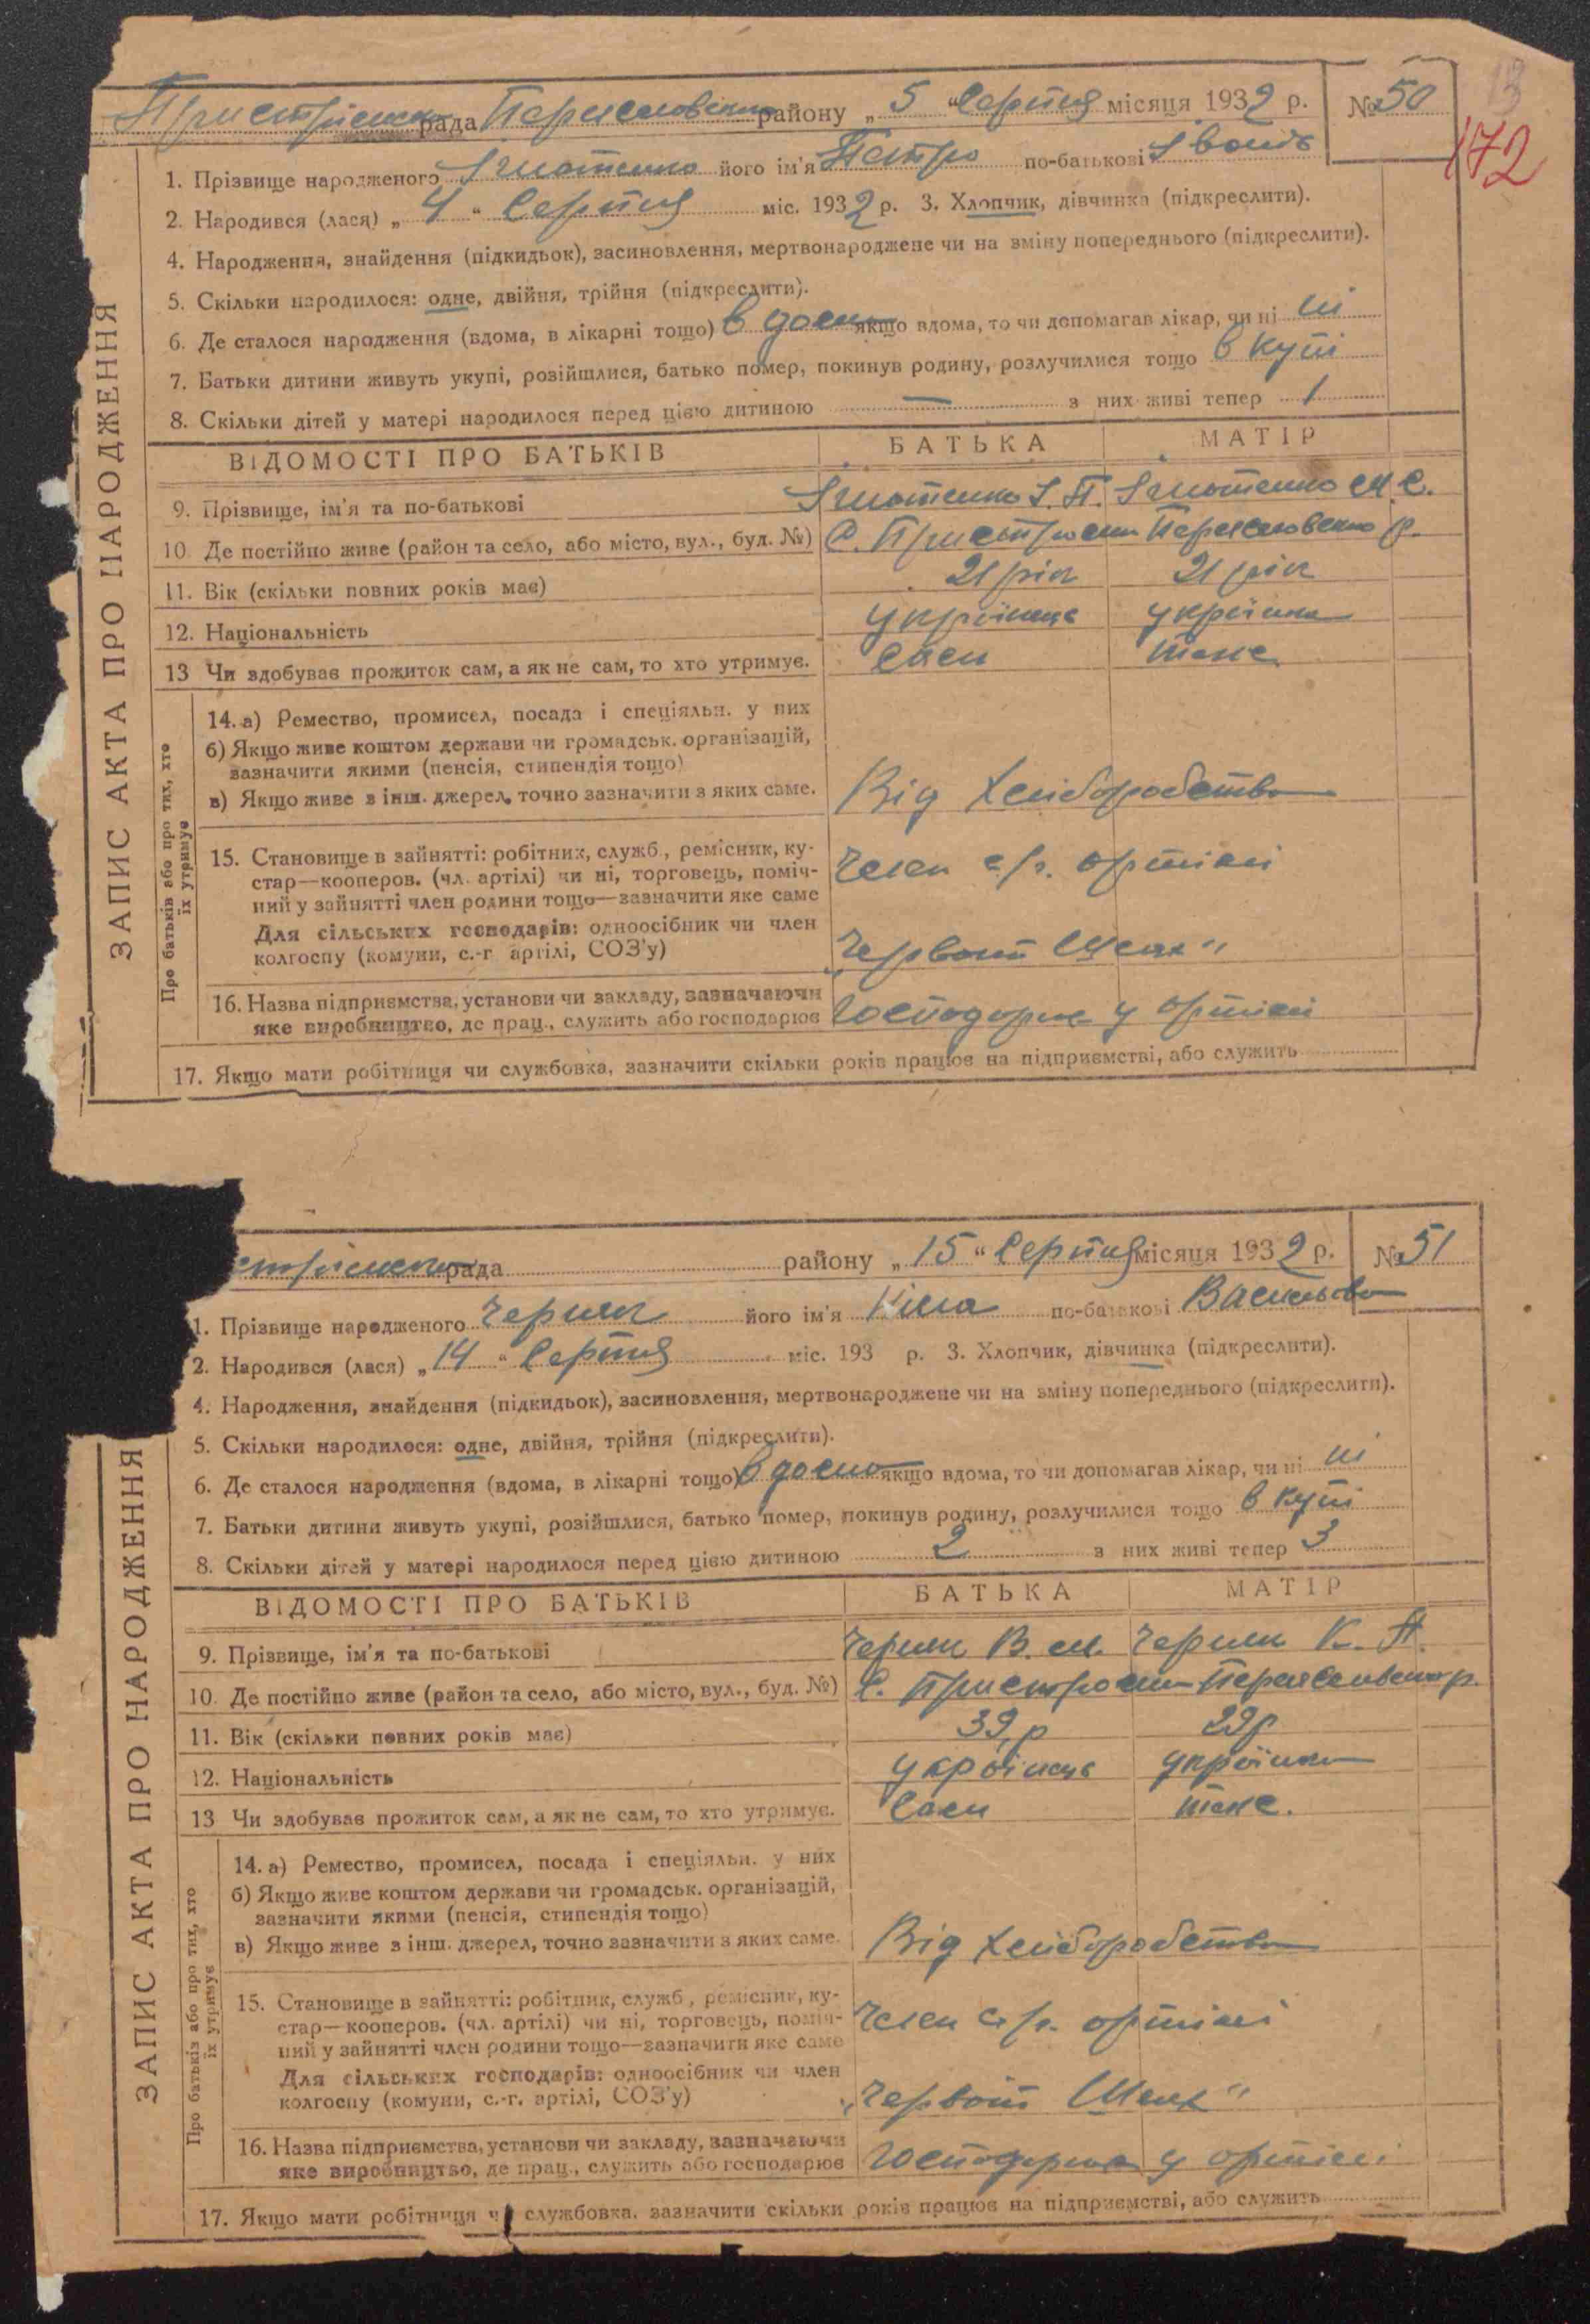 13
172
рада Переяславськ району „ 5 “ Серпня місяця 1932 р. № 50
ЗАПИС АКТА ПРО НАРОДЖЕННЯ
1. Прізвище народженого Ігнатенко його ім'я Петро по-батькові Івовіч
2. Народився (лася) „ 4 “ Серпня міс. 1932 р. 3. Хлопчик, дівчинка (підкреслити).
4. Народження, знайдення (підкидьок), засиновлення, мертвонароджене чи на зміну попереднього (підкреслити).
5. Скільки народилося: одне, двійня, трійня (підкреслити).
6. Де сталося народження (вдома, в лікарні тощо) в дома якщо вдома, то чи допомагав лікар, чи ні ні
7. Батьки дитини живуть укупі, розійшлися, батько помер, покинув родину, розлучилися тощо в купі
8. Скільки дітей у матері народилося перед цією дитиною — з них живі тепер 1
ВІДОМОСТІ ПРО БАТЬКІВ БАТЬКА МАТІР
9. Прізвище, ім'я та по-батькові Ігнатенко І. П. Ігнатенко М. С.
10. Де постійно живе (район та село, або місто, вул., буд. №) С. Пристроми Переяславсько р.
11. Вік (скільки повних років має) 21 рік 21 рік
12. Національність українець українка
13 Чи здобував прожиток сам, а як не сам, то хто утримує. Сам теже
Про батьків або про тих, хто їх утримує
14. а) Ремество, промисел, посада і спеціяльн. у них
б) Якщо живе коштом держави чи громадськ. організацій,
зазначити якими (пенсія, стипендія тощо)
в) Якщо живе з інш. джерел, точно зазначити з яких саме. Від хліборобства
15. Становище в зайнятті: робітник, служб., ремісник, ку-
стар—кооперов. (чл. артілі) чи ні, торговець, поміч- Член с/г. артілі
ний у зайнятті член родини тощо—зазначити яке саме
Для сільських господарів: одноосібник чи член
колгоспу (комуни, с.-г артілі, СОЗ'у) „Червоний Шлях“
16. Назва підприємства, установи чи закладу, зазначаючи
яке виробництво, де прац., служить або господарює господарює у артілі
17. Якщо мати робітниця чи службовка, зазначити скільки років працює на підприємстві, або служить
рада району „ 15 “ Серпня місяця 1932 р. № 51
ЗАПИС АКТА ПРО НАРОДЖЕННЯ
1. Прізвище народженого Черняк його ім'я Ніна по-батькові Васильовна
2. Народився (лася) „ 14 “ Серпня міс. 193 р. 3. Хлопчик, дівчинка (підкреслити).
4. Народження, знайдення (підкидьок), засиновлення, мертвонароджене чи на зміну попереднього (підкреслити).
5. Скільки народилося: одне, двійня, трійня (підкреслити).
6. Де сталося народження (вдома, в лікарні тощо) в дома якщо вдома, то чи допомагав лікар, чи ні ні
7. Батьки дитини живуть укупі, розійшлися, батько помер, покинув родину, розлучилися тощо в купі
8. Скільки дітей у матері народилося перед цією дитиною 2 з них живі тепер 3
ВІДОМОСТІ ПРО БАТЬКІВ БАТЬКА МАТІР
9. Прізвище, ім'я та по-батькові Черняк В. М. Черняк К. П.
10. Де постійно живе (район та село, або місто, вул., буд. №) С. Пристроми Переяславсько р.
11. Вік (скільки повних років має) 39 р 29 р
12. Національність українець українка
13 Чи здобував прожиток сам, а як не сам, то хто утримує. Сам теже.
Про батьків або про тих, хто їх утримує
14. а) Ремество, промисел, посада і спеціяльн. у них
б) Якщо живе коштом держави чи громадськ. організацій,
зазначити якими (пенсія, стипендія тощо)
в) Якщо живе з інш. джерел, точно зазначити з яких саме. Від хліборобства
15. Становище в зайнятті: робітник, служб., ремісник, ку-
стар—кооперов. (чл. артілі) чи ні, торговець, поміч- Член с/г. артілі
ний у зайнятті член родини тощо—зазначити яке саме
Для сільських господарів: одноосібник чи член
колгоспу (комуни, с.-г. артілі, СОЗ'у) „Червоний Шлях“
16. Назва підприємства, установи чи закладу, зазначаючи
яке виробництво, де прац., служить або господарює господарює у артілі
17. Якщо мати робітниця ч службовка, зазначити скільки років працює на підприємстві, або служить